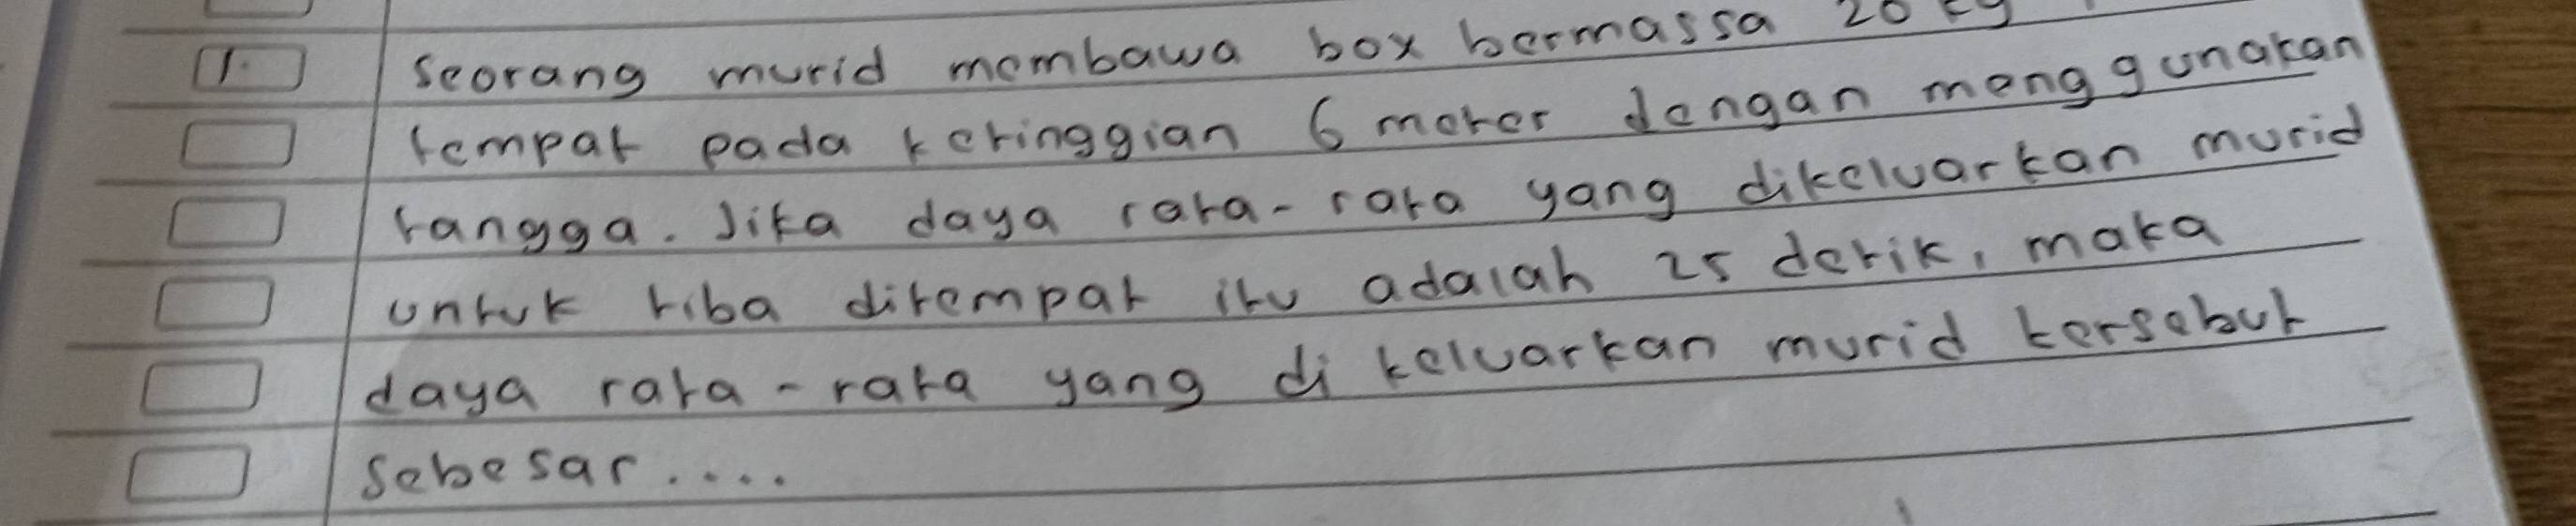 1. Seorang murid membawa box bermassa 20 kg
tempat pada ketinggian 6 meter dengan menggunakan
tangga. Jika daya rata-rata yang dikeluarkan murid
untuk tiba ditempat itu adalah 25 detik, maka
daya rata-rata yang di keluarkan murid tersebut
sebesar....